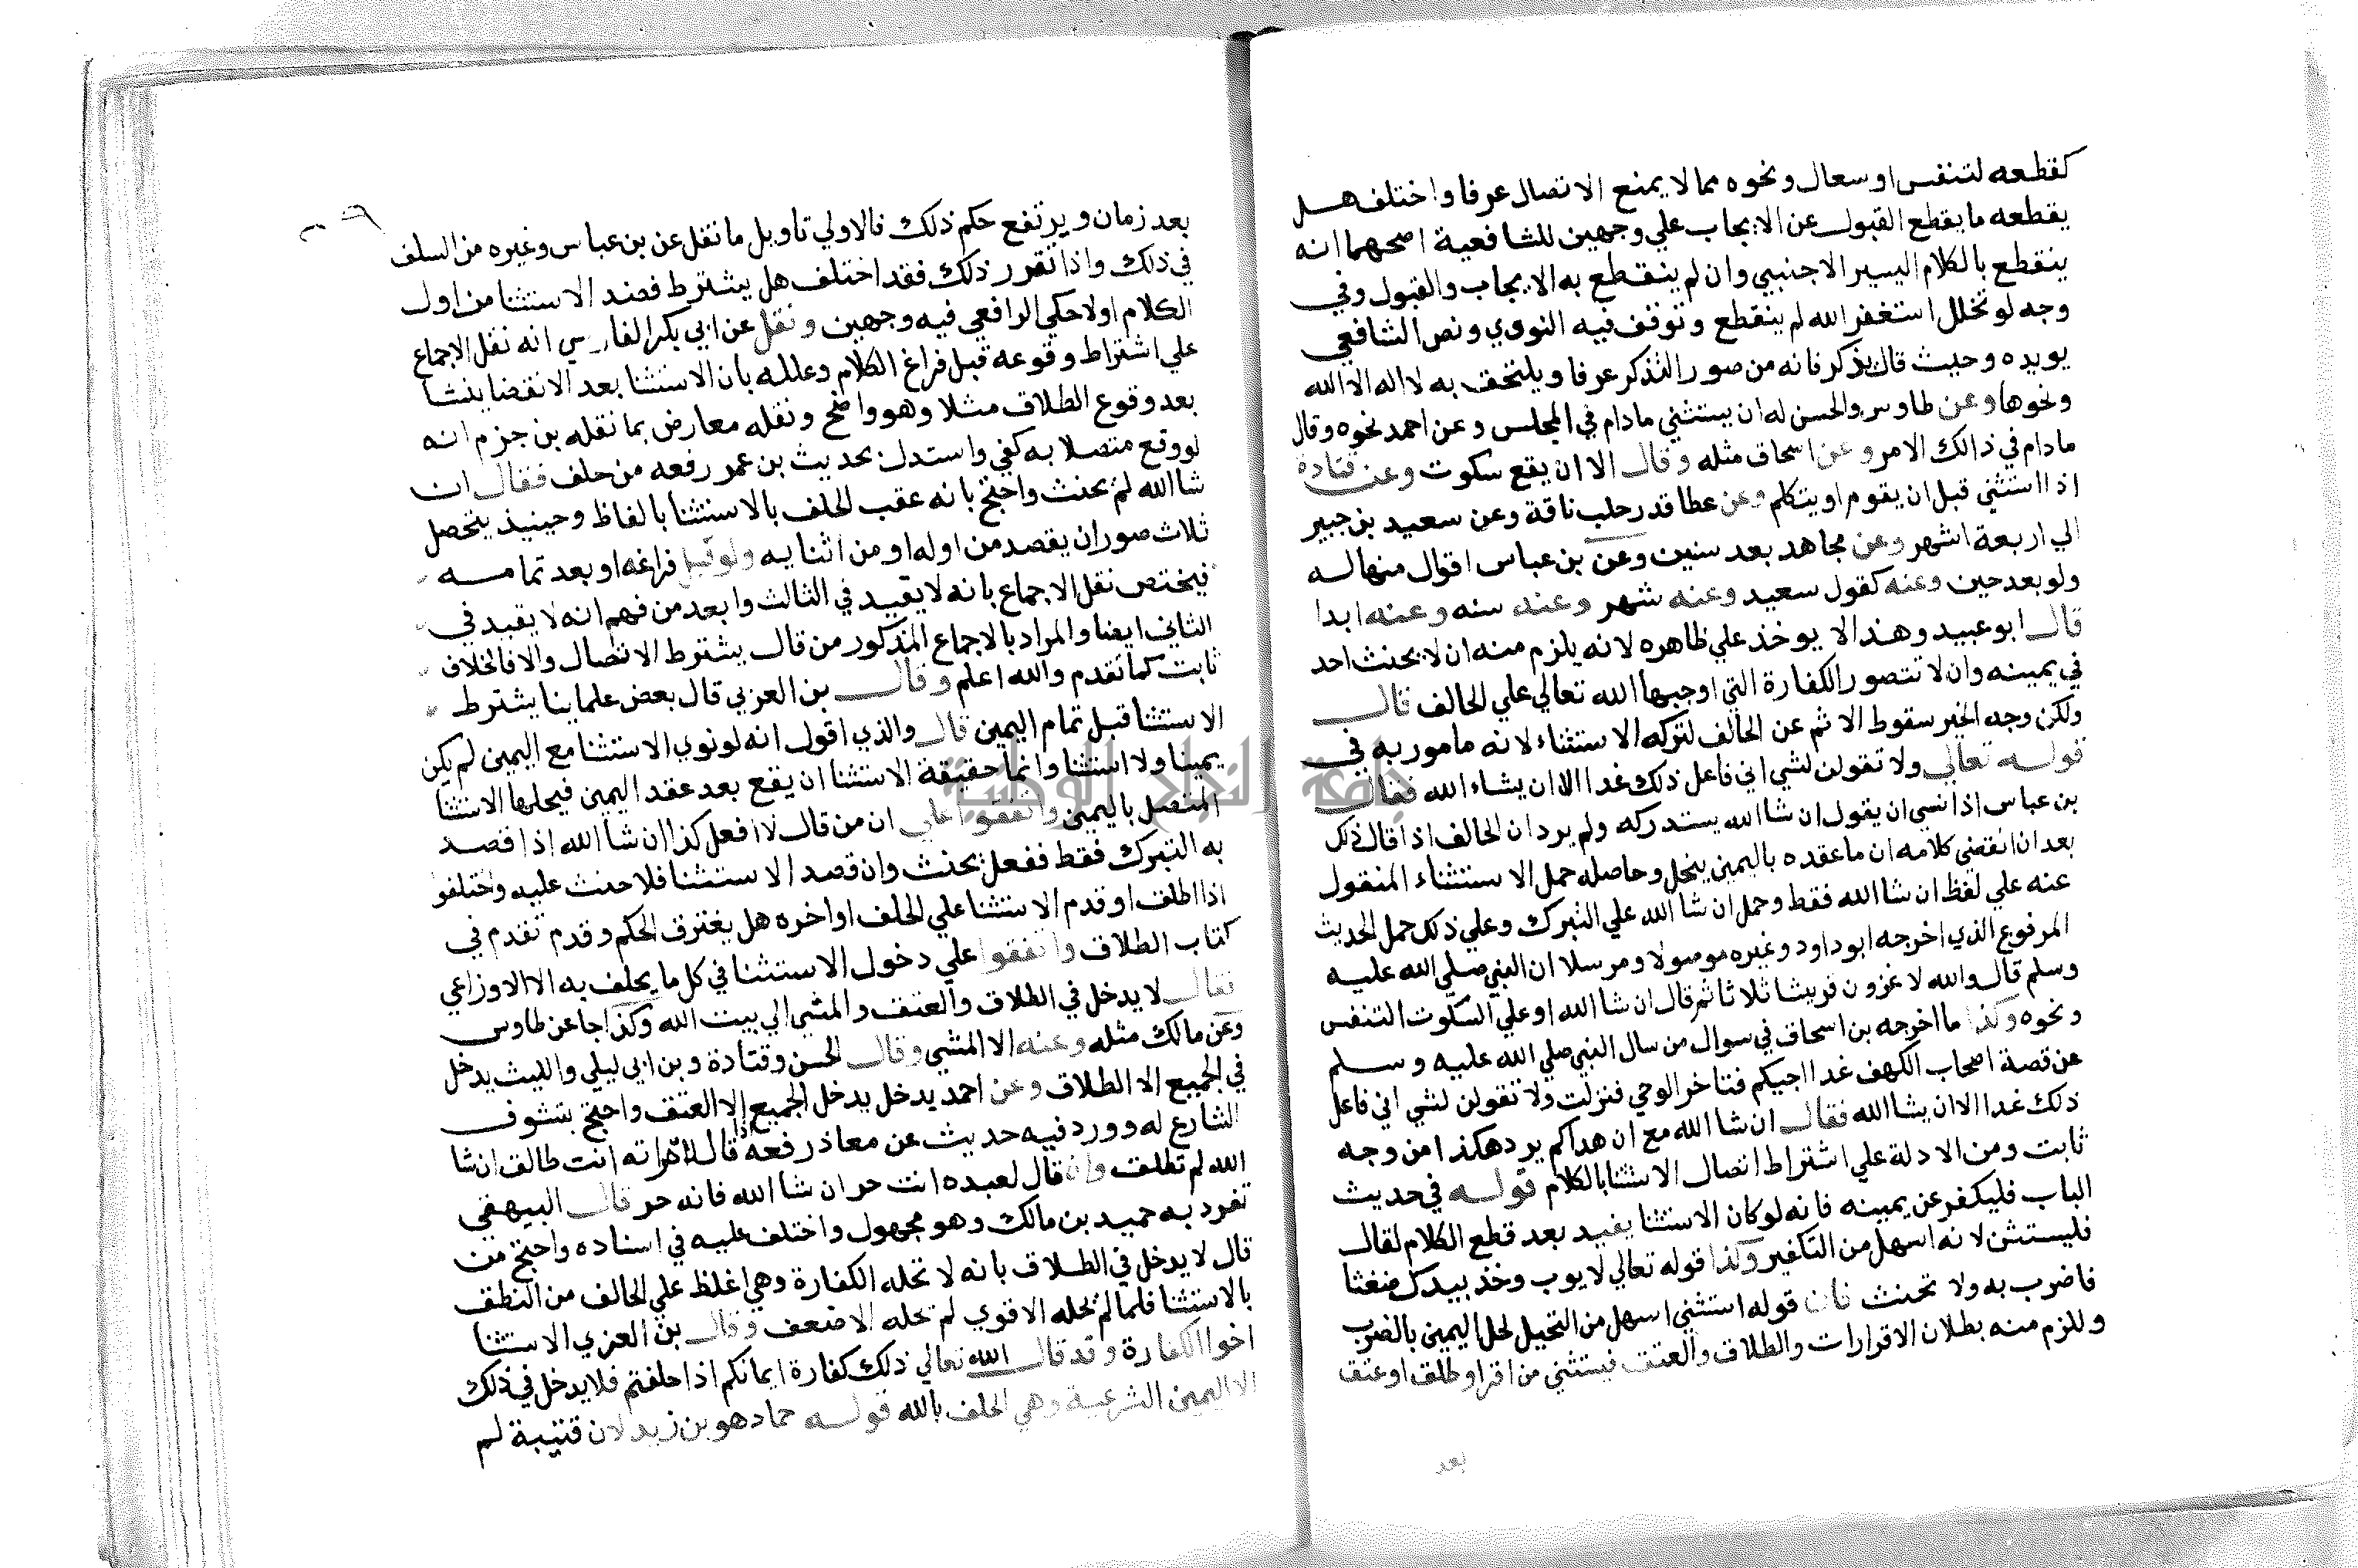 كقطعه لتنفس او سعال ونحوه مما لا يمنع الاتصال عرفا واختلف هل
يقطعه ما يقطع القبول عن الايجاب علي وجهين للشافعية اصحهما انه
ينقطع بالكلام اليسير الاجنبي وان لم ينقطع به الايجاب والقبول وفي
وجه لو تخلل استغفر الله لم ينقطع وتوقف فيه النووي ونص الشافعي
يويده وحيث قال يذكر فانه من صور التذكر عرفا ويلتحق به لا اله الا الله
ونحوها وعن طاوس والحسن له ان يستثني مادام في المجلس وعن احمد نحوه وقال
مادام في ذالك الامر وعن اسحاق مثله وقال الا ان يقع سكوت وعن قتادة
اذا استثني قبل ان يقوم او يتكلم وعن عطا قدر حلب ناقة وعن سعيد بن جبير
الي اربعة اشهر وعن مجاهد بعد سنين وعن بن عباس اقوال منها له
ولو بعد حين وعنه كقول سعيد وعنه شهر وعنه سنه وعنه ابدا
قال ابو عبيد وهذا لا يوخذ علي ظاهره لانه يلزم منه ان لا يحنث احد
في يمينه وان لا تتصور الكفارة التي اوجبها الله تعالي علي الحالف قال
ولكن وجه الخبر سقوط الاثم عن الحالف لتركه الاستثناء لانه مامور به في
قوله تعالي ولا تقولن لشي اني فاعل ذلك غدا الا ان يشاء الله فقال
بن عباس اذا نسي ان يقول ان شا الله يستدركه ولم يرد ان الحالف اذا قال ذلك
بعد ان انقضي كلامه ان ما عقده باليمين ينحل وحاصله حمل الاستثناء المنقول
عنه علي لفظ ان شا الله فقط وحمل ان شا الله علي التبرك وعلي ذلك حمل الحديث
المرفوع الذي اخرجه ابو داود وغيره موصولا ومرسلا ان النبي صلي الله عليه
وسلم قال والله لاغزون قريشا ثلاثا ثم قال ان شا الله او علي السكوت التنفس
ونحوه وكذا ما اخرجه بن اسحاق في سوال من سال النبي صلي الله عليه وسلم
عن قصة اصحاب الكهف غدا اجيبكم فتاخر الوحي فنزلت ولا تقولن لشي اني فاعل
ذلك غدا الا ان يشا الله فقال ان شا الله مع ان هذا لم يرد هكذا من وجه
ثابت ومن الادلة علي اشتراط اتصال الاستثنا بالكلام قوله في حديث
الباب فليكفر عن يمينه فانه لو كان الاستثنا يفيد بعد قطع الكلام لقال
فليستثن لانه اسهل من التكفير وكذا قوله تعالي لايوب وخذ بيدك ضغثا
فاضرب به ولا تحنث فان قوله استثني اسهل من التحيل لحل اليمين بالضرب
وللزم منه بطلان الاقرارات والطلاق والعتق فيستثني من اقر او طلق او عتق
بعد
بعد زمان ويرتفع حكم ذلك فالاولي تاويل ما نقل عن بن عباس وغيره من السلف
في ذلك واذا تقرر ذلك فقد اختلف هل يشترط قصد الاستثنا من اول
الكلام اولا حكي الرافعي فيه وجهين ونقل عن ابي بكر الفارسي انه نقل الاجماع
علي اشتراط وقوعه قبل فراغ الكلام وعلله بان الاستثنا بعد الانقضا ينشا
بعد وقوع الطلاق مثلا وهو واضح ونقله معارض بما نقله بن حزم انه
لو وقع متصلا به كفي واستدل بحديث بن عمر رفعه من حلف فقال ان
شا الله لم يحنث واحتج بانه عقب الحلف بالاستثنا بالفاظ وحينيذ يتحصل
ثلاث صور ان يقصد من اوله او من اثنايه ولو قبل فراغه او بعد تمامه
فيختص نقل الاجماع بانه لا يفيد في الثالث وابعد من فهم انه لا يفيد في
الثاني ايضا والمراد بالاجماع المذكور من قال يشترط الاتصال والا فالخلاف
ثابت كما تقدم والله اعلم وقال بن العربي قال بعض علماينا يشترط
الاستثنا قبل تمام اليمين قال والذي اقول انه لو نوي الاستثنا مع اليمين لم يكن
يمينا ولا استثنا وانما حقيقة الاستثنا ان يقع بعد عقد اليمين فيحلها الاستثنا
المتصل باليمين واتفقوا علي ان من قال لا افعل كذا ان شا الله اذا قصد
به التبرك فقط ففعل يحنث وان قصد الاستثنا فلا حنث عليه واختلفوا
اذا اطلق او قدم الاستثنا علي الحلف او اخره هل يفترق الحكم وقد تقدم في
كتاب الطلاق واتفقوا علي دخول الاستثنا في كل ما يحلف به الا الاوزاعي
فقال لا يدخل في الطلاق والعتق والمشي الي بيت الله وكذا جا عن طاوس
وعن مالك مثله وعنه الا المشي وقال الحسن وقتادة وبن ابي ليلي والليث يدخل
في الجميع الا الطلاق وعن احمد يدخل يدخل الجميع الا العتق واحتج بتشوف
الشارع له وورد فيه حديث عن معاذ رفعه اذا قال لامراته انت طالق ان شا
الله لم تطلق وان قال لعبده انت حر ان شا الله فانه حر قال البيهقي
تفرد به حميد بن مالك وهو مجهول واختلف عليه في اسناده واحتج من
قال لا يدخل في الطلاق بانه لا تحله الكفارة وهي اغلظ علي الحالف من النطق
بالاستثنا فلما لم يحله الاقوي لم تحله الاضعف وقال بن العربي الاستثنا
اخوا الكفارة وقد قال الله تعالي ذلك كفارة ايمانكم اذا حلفتم فلا يدخل في ذلك
الا اليمين الشرعية وهي الحلف بالله قوله حماد هو بن زيد لان قتيبة لم
جامعة النجاح الوطنية